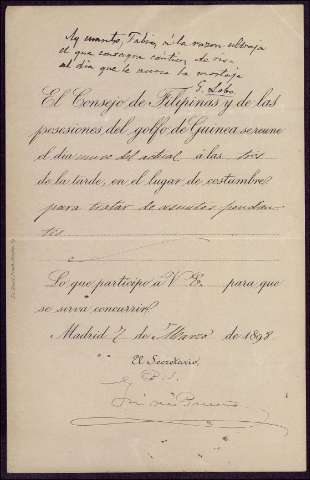 Ay cuanto, Fabio, á la razon ultraja
el que consagra cántico de
al dia que le
G. Lobo
El Consejo de Filipinas y de las
posesiones del golfo de Guinea se reune
el dia nueve del actual á las tres
de la tarde, en el lugar de costumbre
para tratar de asuntos pendien-
tes
Lo que participo á V. E. para que
se sirva concurrir.
Madrid 7 de Marzo de 1898
El Secretario.